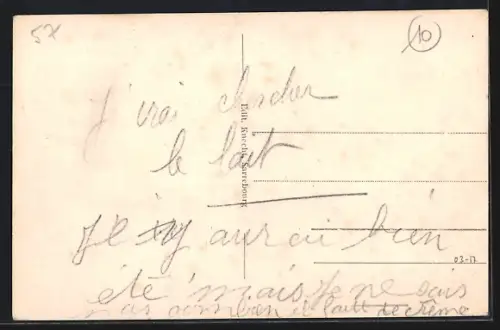 57
10
J'irai chercher
le lait
Edit. Knecht, Sarrebourg
Je y aurai bien
été mais je ne sais
pas combien il faut de crême
03-17